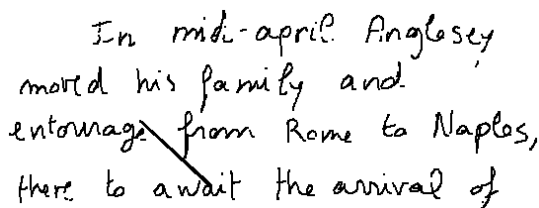 In mid-april Anglesey
moved his family and
entourage from Rome to Naples,
there to await the arrival of